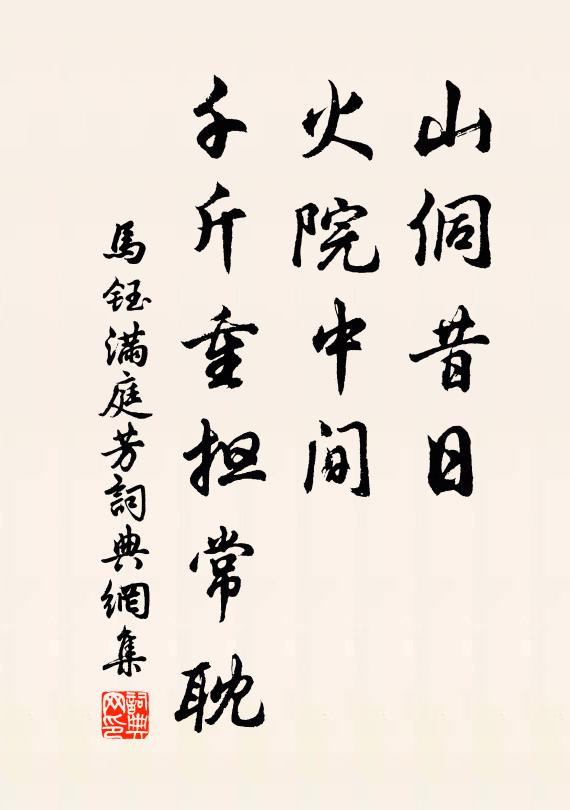 山侗昔日
火院中间
千斤重担常耽
馬鈺滿庭芳詞典網集
詞典网印